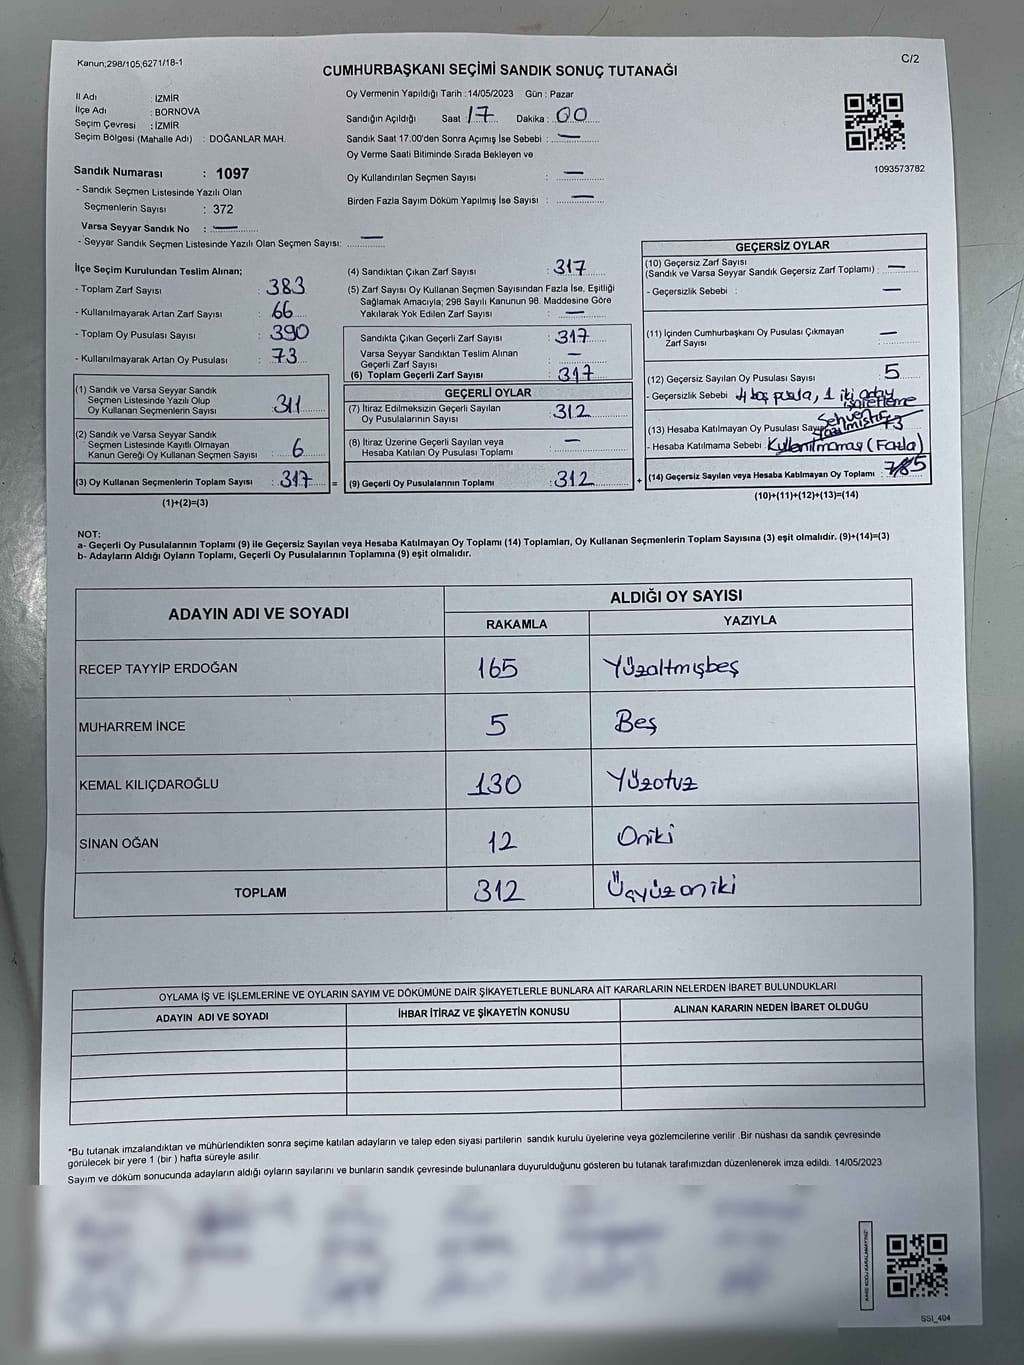 Kanun;298/105,6271/18-1
C/2
CUMHURBAŞKANI SEÇİMİ SANDIK SONUÇ TUTANAĞI
İl Adı : İZMİR
İlçe Adı : BORNOVA
Seçim Çevresi : İZMİR
Seçim Bölgesi (Mahalle Adı) : DOĞANLAR MAH.
Sandık Numarası : 1097
- Sandık Seçmen Listesinde Yazılı Olan
Seçmenlerin Sayısı : 372
Varsa Seyyar Sandık No : —
- Seyyar Sandık Seçmen Listesinde Yazılı Olan Seçmen Sayısı: —
Oy Vermenin Yapıldığı Tarih : 14/05/2023 Gün : Pazar
Sandığın Açıldığı Saat 17 Dakika : 00
Sandık Saat 17:00'den Sonra Açımış İse Sebebi : —
Oy Verme Saati Bitiminde Sırada Bekleyen ve
Oy Kullandırılan Seçmen Sayısı : —
Birden Fazla Sayım Döküm Yapılmış İse Sayısı : —
1093573782
İlçe Seçim Kurulundan Teslim Alınan;
- Toplam Zarf Sayısı : 383
- Kullanılmayarak Artan Zarf Sayısı : 66
- Toplam Oy Pusulası Sayısı : 390
- Kullanılmayarak Artan Oy Pusulası : 73
(1) Sandık ve Varsa Seyyar Sandık
Seçmen Listesinde Yazılı Olup
Oy Kullanan Seçmenlerin Sayısı : 311
(2) Sandık ve Varsa Seyyar Sandık
Seçmen Listesinde Kayıtlı Olmayan
Kanun Gereği Oy Kullanan Seçmen Sayısı : 6
(3) Oy Kullanan Seçmenlerin Toplam Sayısı : 317 =
(1)+(2)=(3)
(4) Sandıktan Çıkan Zarf Sayısı : 317
(5) Zarf Sayısı Oy Kullanan Seçmen Sayısından Fazla İse, Eşitliği
Sağlamak Amacıyla; 298 Sayılı Kanunun 98. Maddesine Göre
Yakılarak Yok Edilen Zarf Sayısı : —
Sandıkta Çıkan Geçerli Zarf Sayısı : 317
Varsa Seyyar Sandıktan Teslim Alınan
Geçerli Zarf Sayısı : —
(6) Toplam Geçerli Zarf Sayısı : 317
GEÇERLİ OYLAR
(7) İtiraz Edilmeksizin Geçerli Sayılan
Oy Pusulalarının Sayısı : 312
(8) İtiraz Üzerine Geçerli Sayılan veya
Hesaba Katılan Oy Pusulası Toplamı : —
(9) Geçerli Oy Pusulalarının Toplamı : 312 +
GEÇERSİZ OYLAR
(10) Geçersiz Zarf Sayısı
(Sandık ve Varsa Seyyar Sandık Geçersiz Zarf Toplamı) : —
- Geçersizlik Sebebi : —
(11) İçinden Cumhurbaşkanı Oy Pusulası Çıkmayan
Zarf Sayısı : —
(12) Geçersiz Sayılan Oy Pusulası Sayısı : 5
- Geçersizlik Sebebi 4 boş pusula, 1 iki aday
işaretleme
Sehven
yazılmıştır
(13) Hesaba Katılmayan Oy Pusulası Sayısı 73
- Hesaba Katılmama Sebebi Kullanılmaması (Fazla)
(14) Geçersiz Sayılan veya Hesaba Katılmayan Oy Toplamı : 5
(10)+(11)+(12)+(13)=(14)
NOT:
a- Geçerli Oy Pusulalarının Toplamı (9) ile Geçersiz Sayılan veya Hesaba Katılmayan Oy Toplamı (14) Toplamları, Oy Kullanan Seçmenlerin Toplam Sayısına (3) eşit olmalıdır. (9)+(14)=(3)
b- Adayların Aldığı Oyların Toplamı, Geçerli Oy Pusulalarının Toplamına (9) eşit olmalıdır.
ADAYIN ADI VE SOYADI
ALDIĞI OY SAYISI
RAKAMLA
YAZIYLA
RECEP TAYYİP ERDOĞAN 165 Yüzaltmışbeş
MUHARREM İNCE 5 Beş
KEMAL KILIÇDAROĞLU 130 Yüzotuz
SİNAN OĞAN 12 Oniki
TOPLAM 312 Üçyüzoniki
OYLAMA İŞ VE İŞLEMLERİNE VE OYLARIN SAYIM VE DÖKÜMÜNE DAİR ŞİKAYETLERLE BUNLARA AİT KARARLARIN NELERDEN İBARET BULUNDUKLARI
ADAYIN ADI VE SOYADI
İHBAR İTİRAZ VE ŞİKAYETİN KONUSU
ALINAN KARARIN NEDEN İBARET OLDUĞU
*Bu tutanak imzalandıktan ve mühürlendikten sonra seçime katılan adayların ve talep eden siyasi partilerin sandık kurulu üyelerine veya gözlemcilerine verilir .Bir nüshası da sandık çevresinde
görülecek bir yere 1 (bir ) hafta süreyle asılır.
Sayım ve döküm sonucunda adayların aldığı oyların sayılarını ve bunların sandık çevresinde bulunanlara duyurulduğunu gösteren bu tutanak tarafımızdan düzenlenerek imza edildi. 14/05/2023
KARE KODU KARALAMAYINIZ
SSI_404